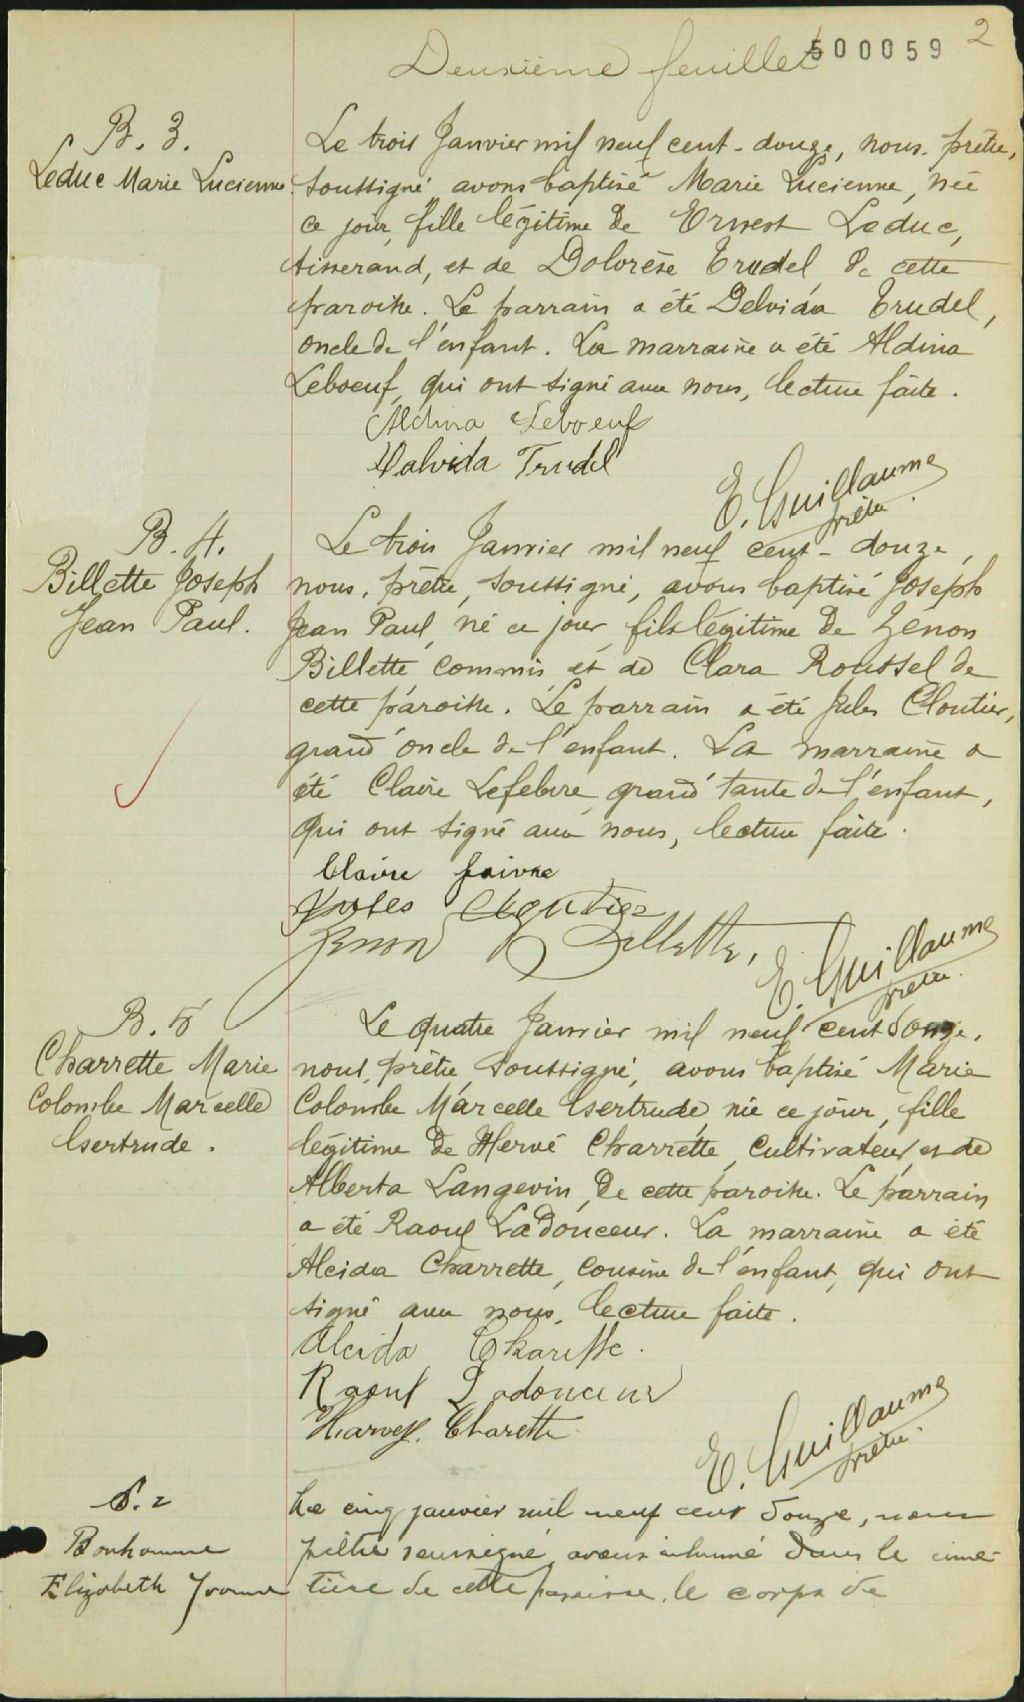 Deuxième feuillet
500059
2
B. 3.
Leduc Marie Lucienne.
Le trois Janvier mil neuf cent-douze, nous, prêtre,
soussigné avons baptisé Marie Lucienne, née
ce jour, fille légitime de Ernest Leduc,
tisserand, et de Dolorèse Trudel, de cette
paroisse. Le parrain a été Delvida Trudel,
oncle de l'enfant. La marraine a été Aldina
Leboeuf, qui ont signé avec nous, lecture faite.
Aldina Leboeuf
Dalvida Trudel
E. Guillaume
prêtre.
B. 4.
Billette Joseph
Jean Paul.
Le trois Janvier mil neuf cent-douze,
nous, prêtre, soussigné, avons baptisé Joseph
Jean Paul, né ce jour, fils légitime de Zenon
Billette commis et de Clara Roussel de
cette paroisse. Le parrain a été Jules Cloutier,
grand'oncle de l'enfant. La marraine a
été Claire Lefebvre grand'tante de l'enfant,
qui ont signé avec nous, lecture faite.
Claire faivre
Jules Cloutier
Zenon Billette,
E. Guillaume
prêtre.
B. 5
Charrette Marie
Colombe Marcelle
Gertrude.
Le quatre Janvier mil neuf cent douze,
nous, prêtre soussigné, avons baptisé Marie
Colombe Marcelle Gertrude, née ce jour, fille
légitime de Hervé Charrette, cultivateur, et de
Alberta Langevin, de cette paroisse. Le parrain
a été Raoul Ladouceur. La marraine a été
Alcida Charrette, cousine de l'enfant, qui ont
signé avec nous, lecture faite.
Alcida Charette.
Raoul Ladouceur
Harvey. Charette
E. Guillaume
prêtre.
S. 2
Bonhomme
Elizabeth Yvonne
Le cinq janvier mil neuf cent douze, nous
prêtre soussigné, avons inhumé dans le cime-
tière de cette paroisse, le corps de